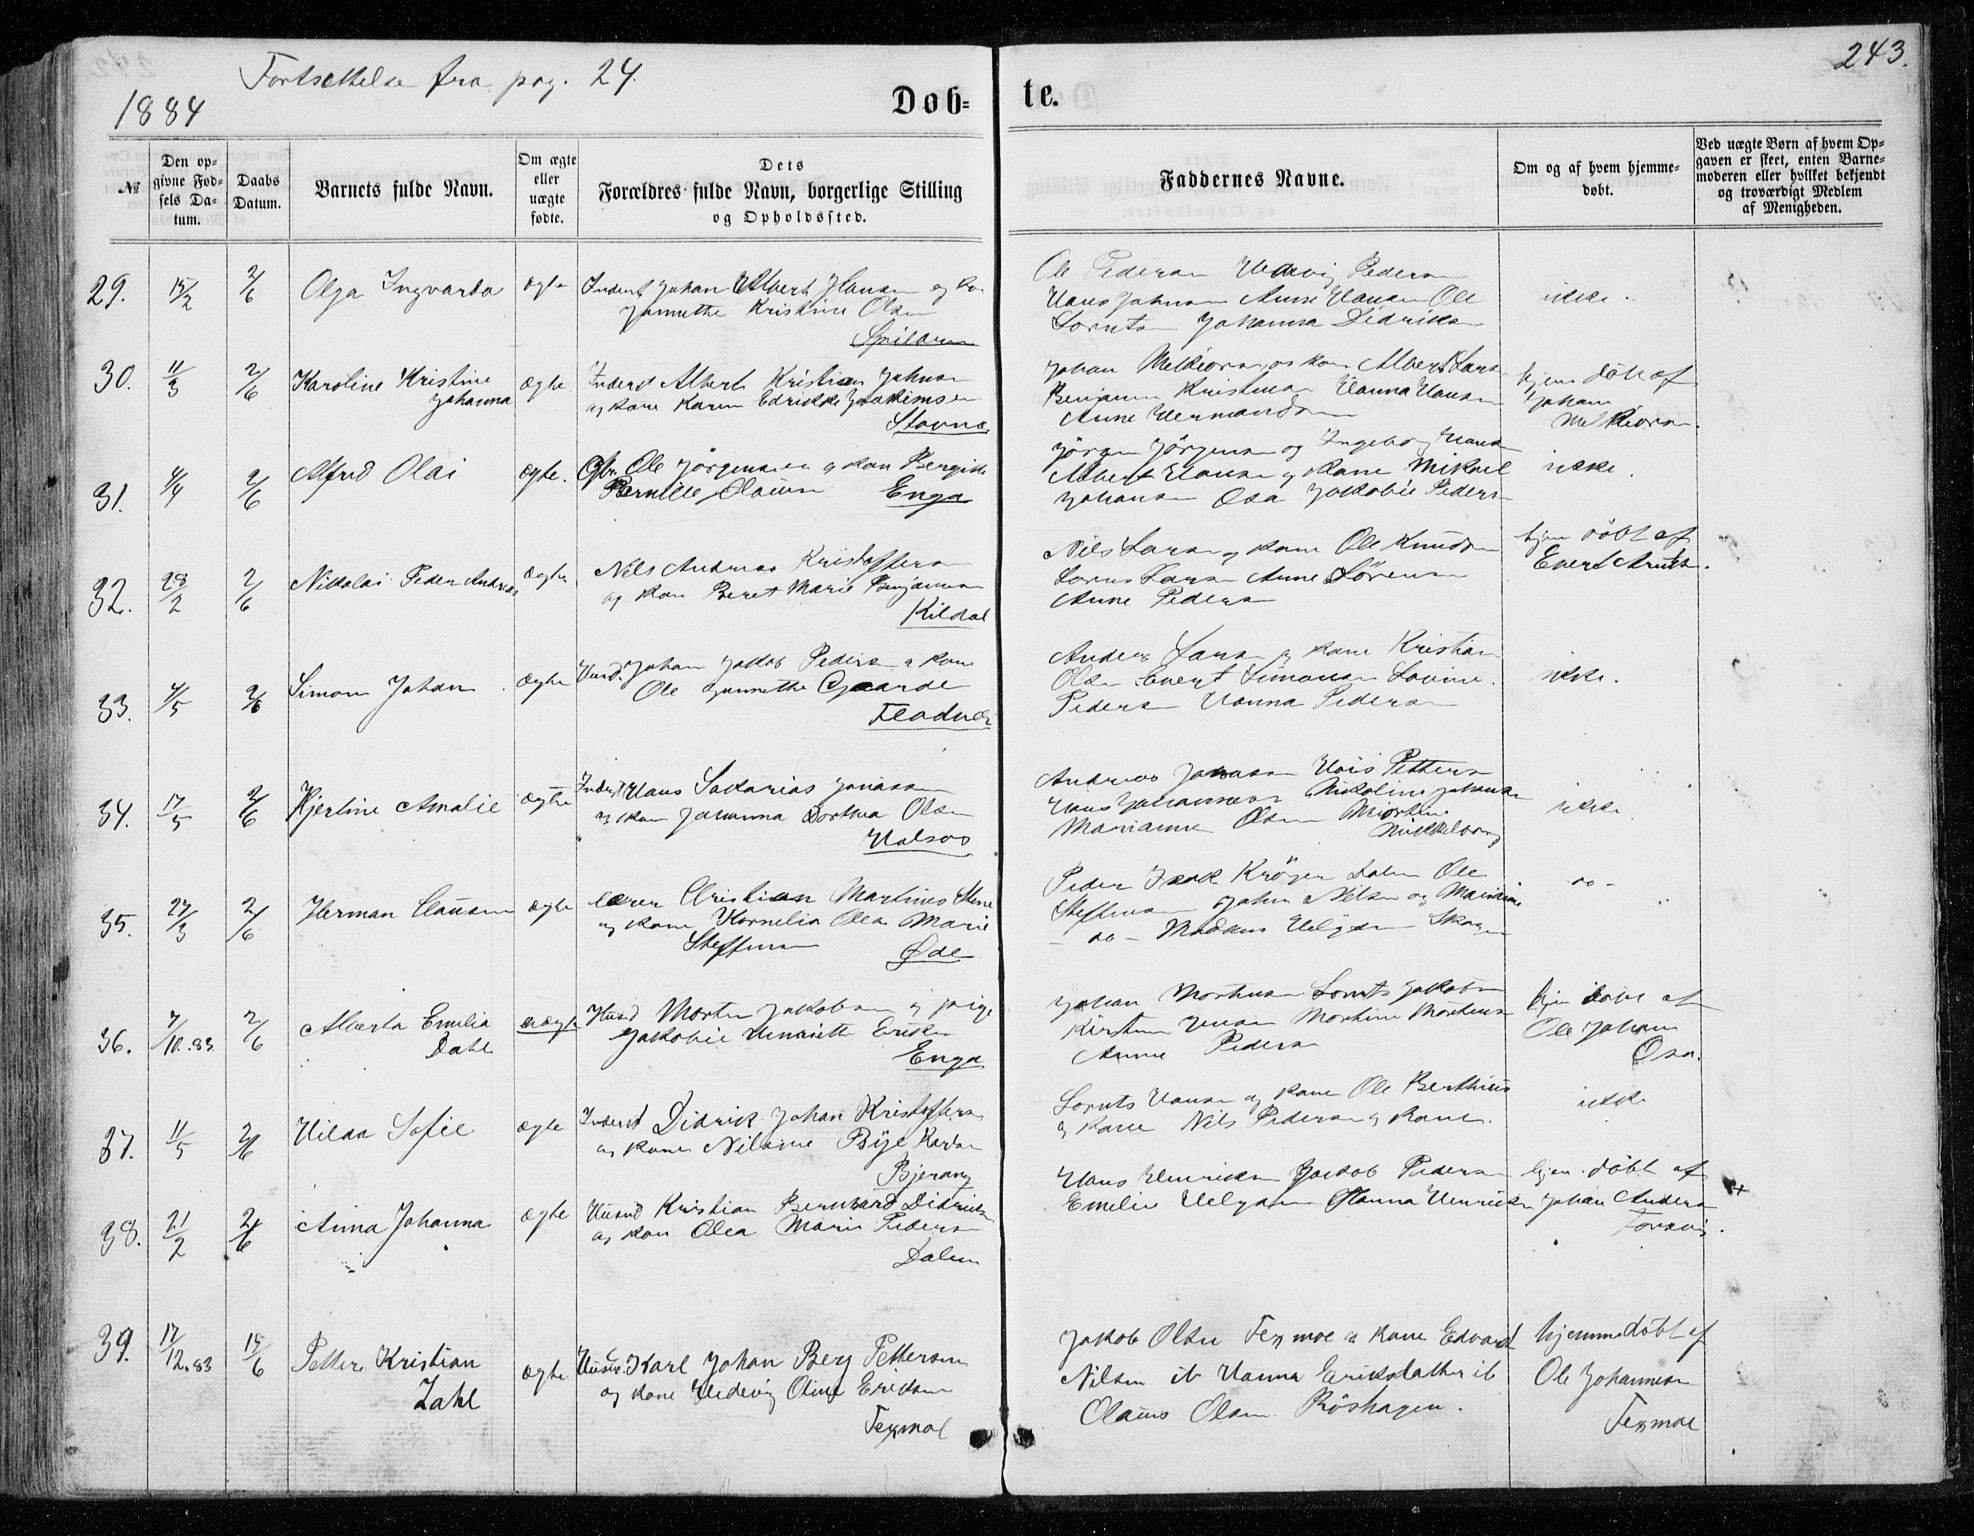 243.
Fortsættelse fra pag. 24.
1884
Døb-
te.
№
Den op-
givne Fød-
sels Da-
tum.
Daabs
Datum.
Barnets fulde Navn.
Om ægte
eller
uægte
fødte.
Dets
Forældres fulde Navn, borgerlige Stilling
og Opholdssted.
Faddernes Navne.
Om og af hvem hjemme-
døbt.
Ved uægte Børn af hvem Op-
gaven er skeet, enten Barne-
moderen eller hvilket bekjendt
og troværdigt Medlem
af Menigheden.
29. 15/2 2/6 Olga Ingvarda ægte Inderst Johan Albert Hansen og
Kristine Olsen
Spildren
Ole Pedersen Hedevig Pedersen
Hans Johnsen Anne Hansen Ole
Lorntsen Johanna Didriksen
ikke.
30. 11/3 2/6 Karoline Kristine
Johanna
ægte Inderst Albert Kristian Johnsen
og kone Karen Edrikke Joakimsen
Stavnes
Johan Melkiorsen og kone Albert Larsen
Benjamin Kristensen Hanna Hansen
Anne Hermandsen
hjem døbt af
Johan
Melkiorsen.
31. 4/4 2/6 Alfred Olai ægte. Gbr. Ole Jørgensen og kone Bergitte
Pernille Olausen Enga
Jørgen Jørgensen og Ingeborg Hansen
Albert Hansen og kone Mikael
Johansen Osa Jakobie Pedersen
ikke.
32. 28/2 2/6 Nikolai Peder Andreas ægte Nils Andreas Kristoffersen
og kone Beret Marie Benjaminsen
Kildal
Nils Larsen og kone Ole Knudsen
Lorns Larsen Anne Sørensen
Anne Pedersen
hjem døbt af
Evert Arntsen.
33. 4/5 2/6 Simon Johan ægte Husd. Johan Jakob Pedersen og kone
Ole
Anders Larsen og kone Kristian
Olsen Evert Simonsen Lovine
Pedersen Hanna Pedersen
ikke.
34. 17/5 2/6 Hjertine Amalie ægte Inderst Hans Sakarias Jonassen
og kone Johanna Dorthea Olsen
Halsos
Andreas Johnsen Petters
Hans Johannesen Nikoline Johansen
Marianne Olsen
ikke
35. 27/3 2/6 Herman Clausen ægte Lærer Christian Martinus Stene
og kone Kornelia Olea Marie
Steffensen Øde
Peder Isak Krøger Dalen Ole
Steffensen Johan Nilsen og
- do - Helgesen Skogen
- do -
36. 7/10.83. 2/6 Alberta Emilia
Dahl
uægte Husd Morten Jakobsen og pige
Jakobie Henriette Eriksen
Enga
Johan Mortensen Lornts Jakobsen
Kirsten Jensen Martine Mortensen
Anne Pedersen
hjem døbt af
Ole Johan
Osa.
37. 11/5 2/6 Hilda Sofie ægte Inderst Didrik Johan Kristoffersen
og kone Nilsine Bye Karlsen
Bjerang
Lornts Hansen og kone Ole Berthius
og kone Nils Pedersen og kone.
ikke
38. 21/2 2/6 Anna Johanna ægte Husmd Kristian Bernhard Didriksen
og kone Olea Marie Pedersen
Dalen
Hans Henriksen Jakob Pedersen
Emelie Helgesen Hanna Henriksen
hjem. døbt af
Johan Andersen
39. 17/12.83 15/6 Petter Kristian
Zahl
ægte Husmd. Karl Johan Berg Pettersen
og kone Hedevig Oline Eriksen
Texmoe
Jakob Olsen Texmoe og kone Edvard
Nilsen ib Hanna Eriksdatter ib
Olaus Olsen Røshagen.
hjemmedøbt af
Ole Johannesen
Texmoe